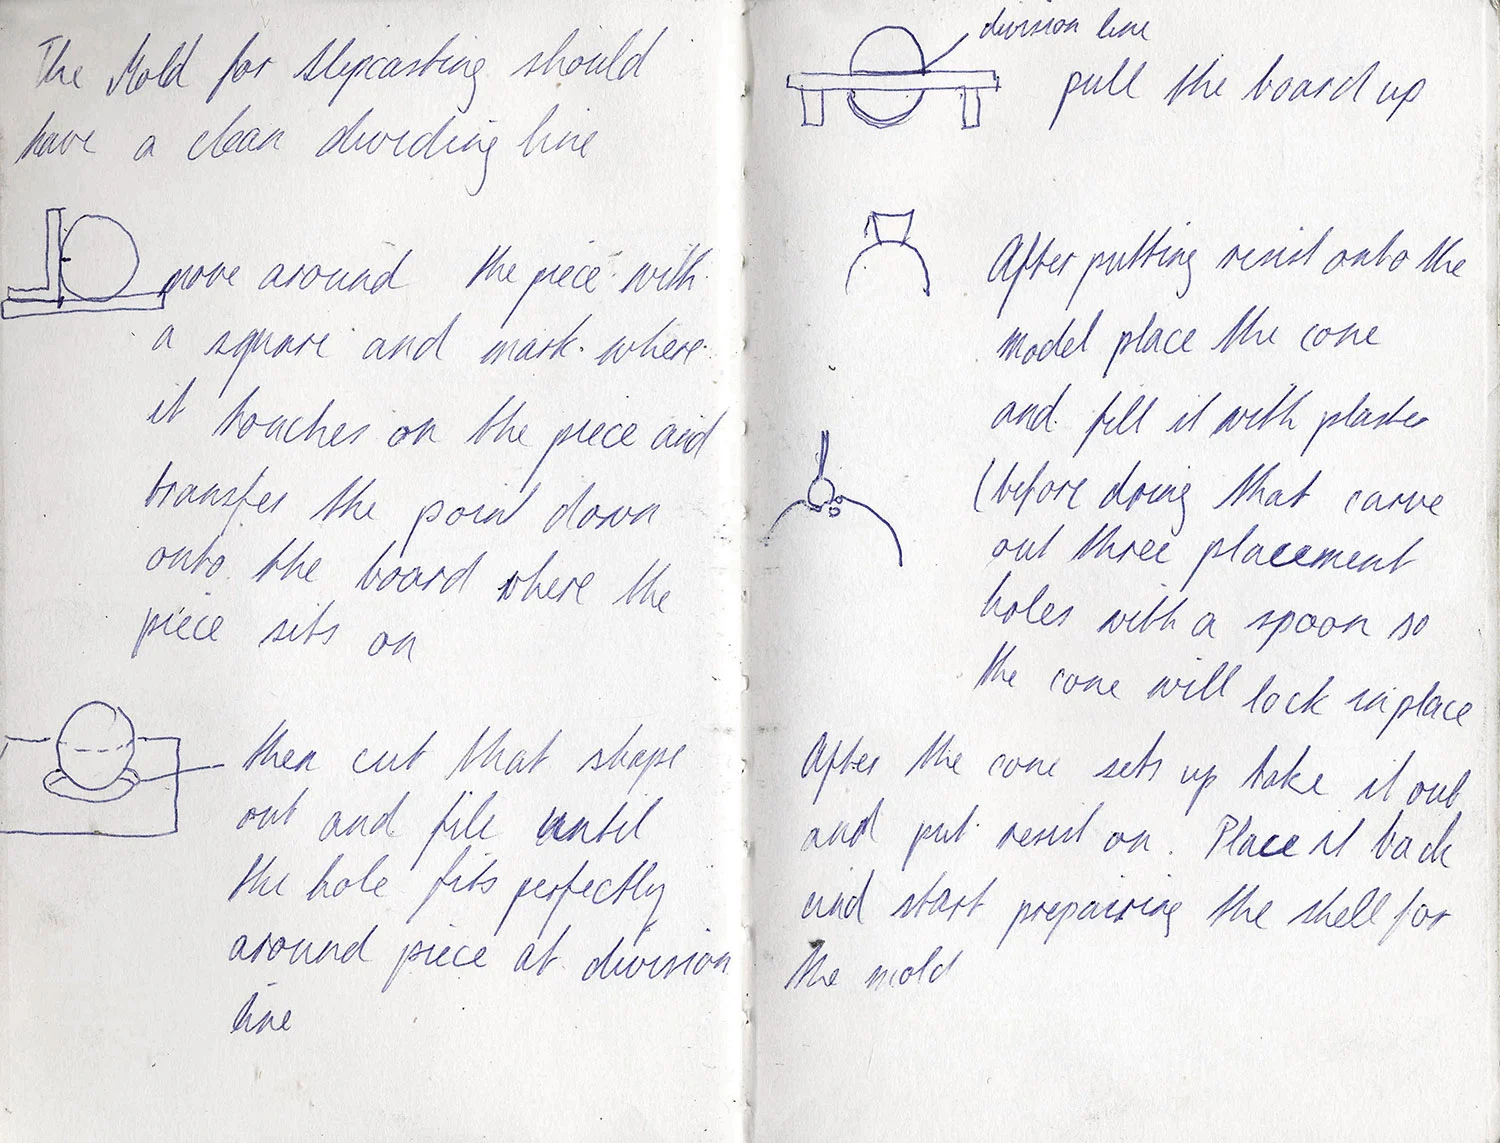 The Mold for Slipcasting should
have a clean dividing line
move around the piece with
a square and mark where
it touches on the piece and
transfer the point down
onto the board where the
piece sits on
then cut that shape
out and file until
the hole fits perfectly
around piece at division
line
division line
pull the board up
After putting resist onto the
model place the cone
and fill it with plaster
(before doing that carve
out three placement
holes with a spoon so
the cone will lock in place
After the cone sets up take it out
and put resist on. Place it back
and start prepairing the shell for
the mold